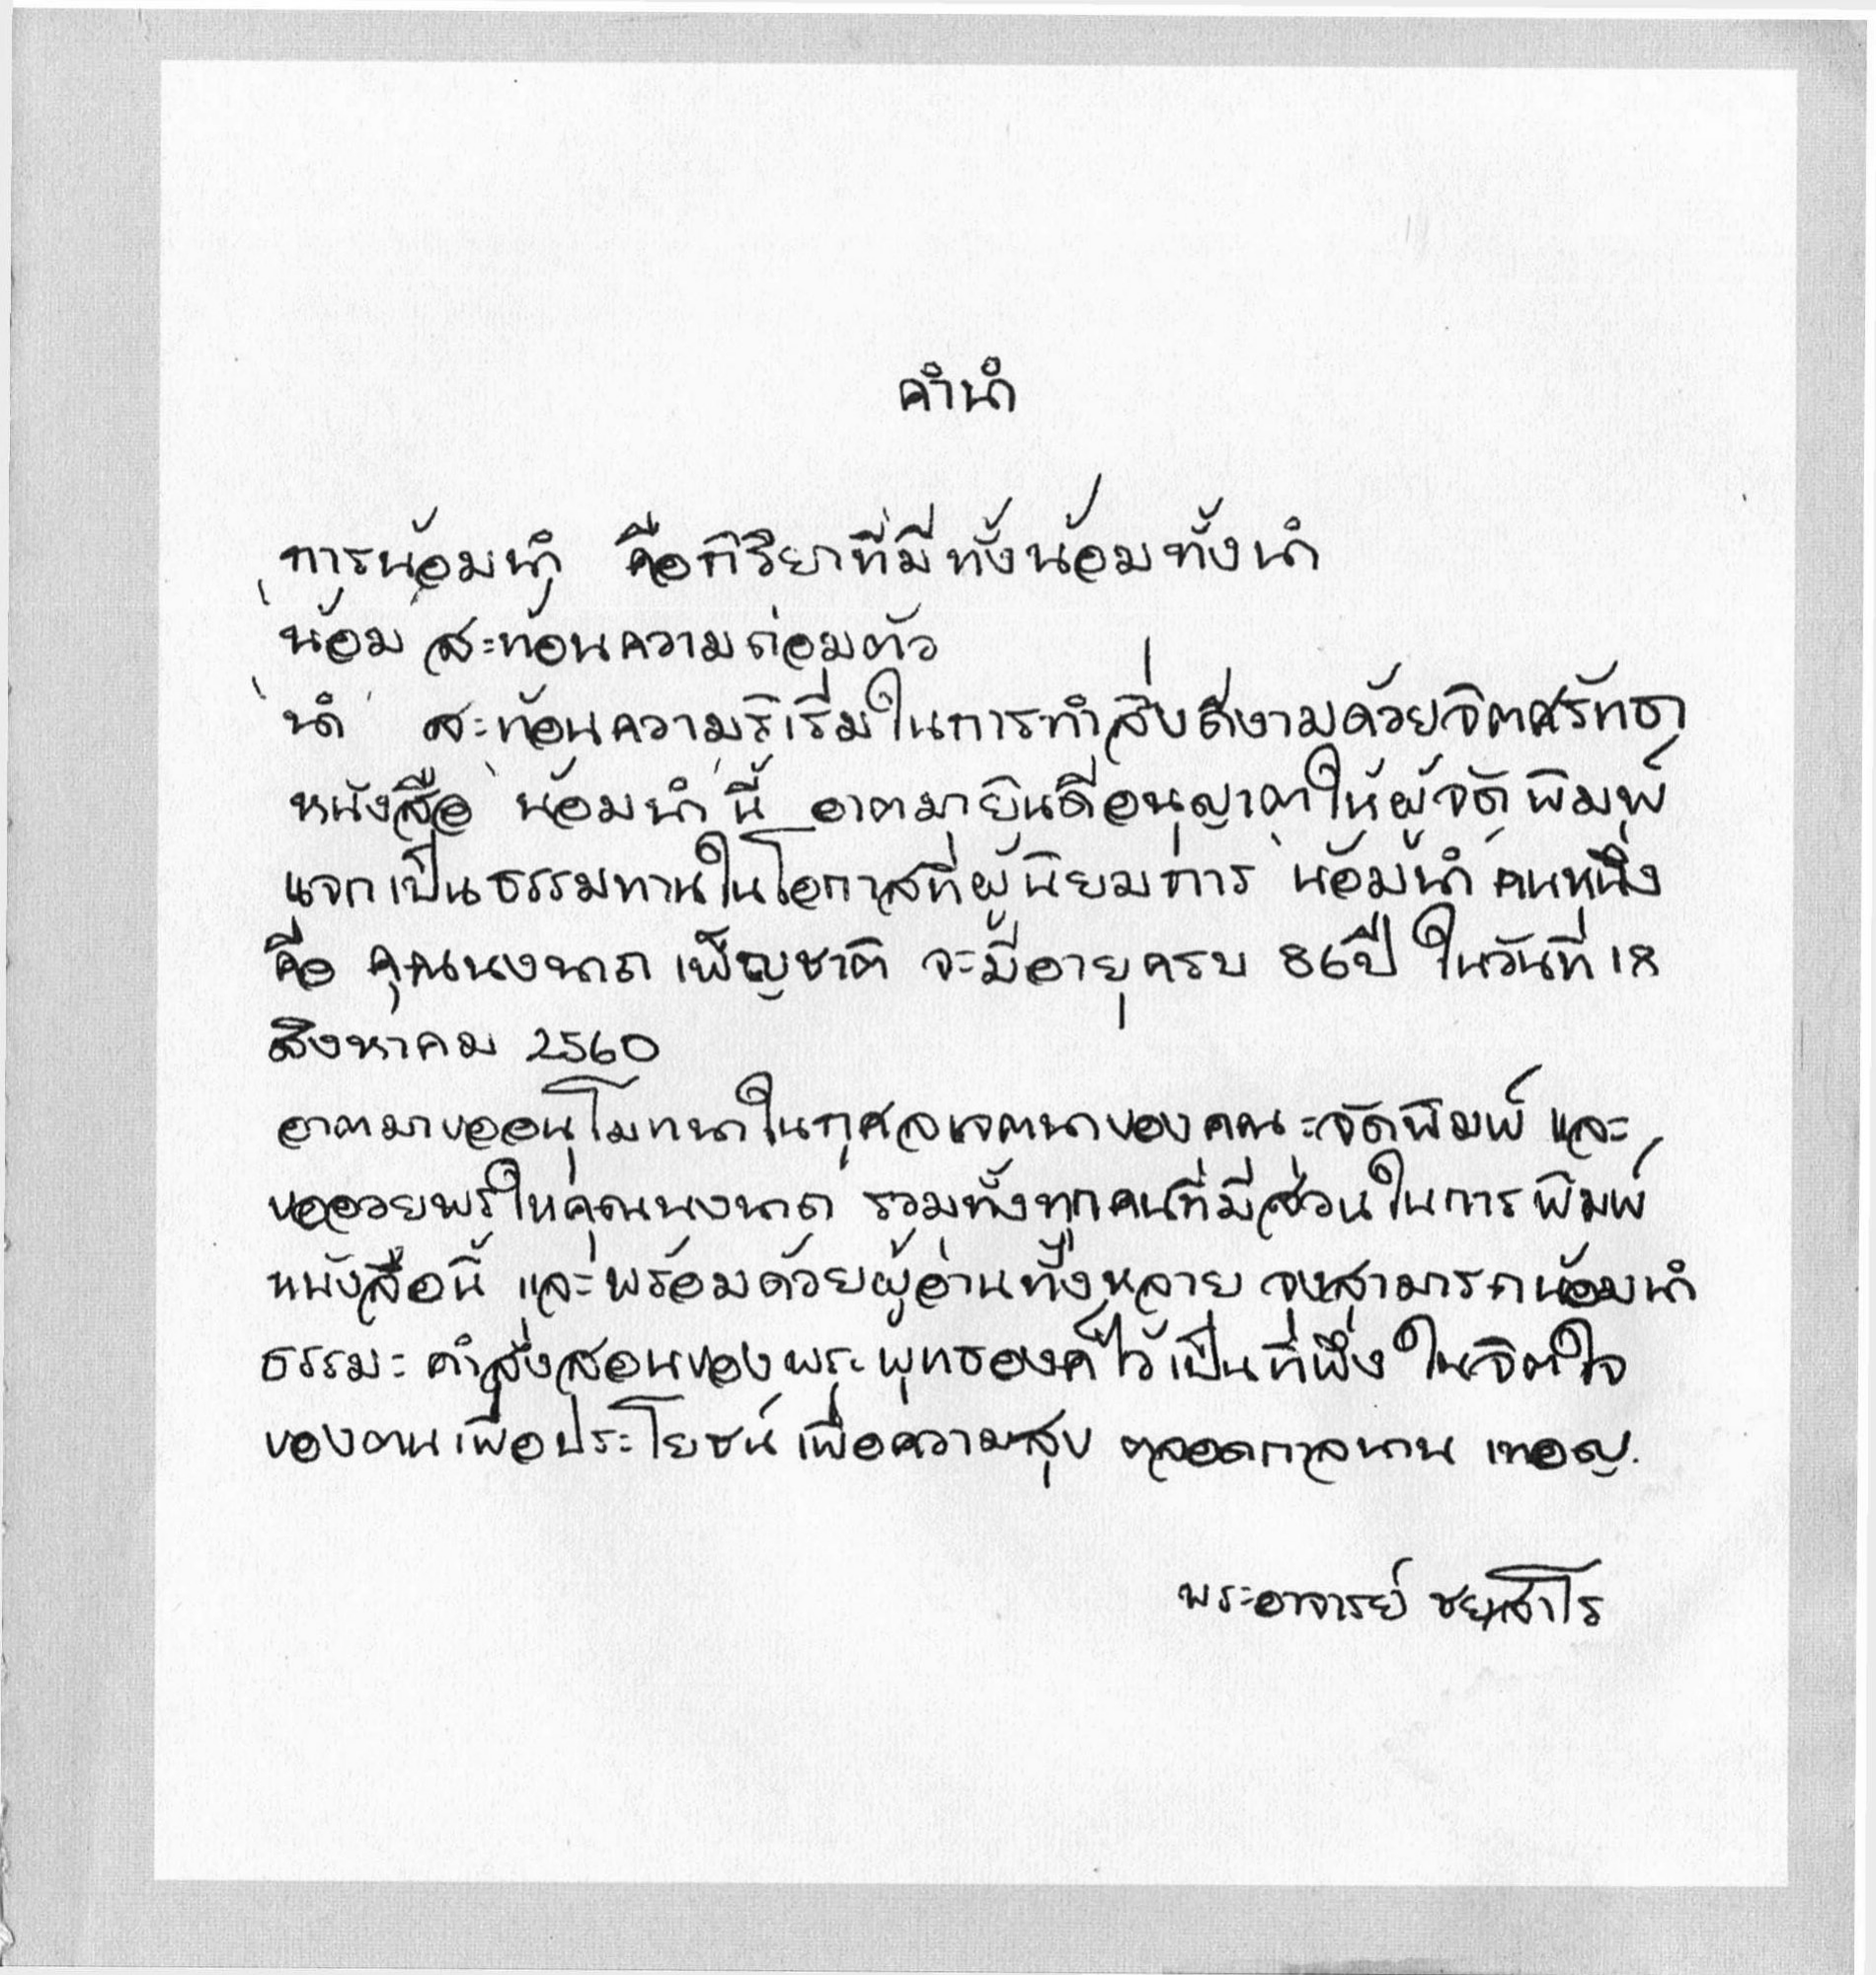 คำนำ
การน้อมนำ คือกิริยาที่มีทั้งน้อมทั้งนำ
'น้อม' สะท้อนความถ่อมตัว
'นำ' สะท้อนความริเริ่มในการทำสิ่งดีงามด้วยจิตศรัทธา
หนังสือ 'น้อมนำ' นี้ อาตมายินดีอนุญาตให้ผู้จัดพิมพ์
แจกเป็นธรรมทานในโอกาสที่ผู้นิยมการ 'น้อมนำ' คนหนึ่ง
คือ คุณนงนาถ เพ็ญชาติ จะมีอายุครบ 86 ปี ในวันที่ 18
สิงหาคม 2560
อาตมาขออนุโมทนาในกุศลเจตนาของคณะจัดพิมพ์ และ
ขออวยพรให้คุณนงนาถ รวมทั้งทุกคนที่มีส่วนในการพิมพ์
หนังสือนี้ และพร้อมด้วยผู้อ่านทั้งหลาย จงสามารถน้อมนำ
ธรรมะ คำสั่งสอนของพระพุทธองค์ไว้เป็นที่พึ่ง ในจิตใจ
ของตนเพื่อประโยชน์ เพื่อความสุข ตลอดกาลนาน เทอญ.
พระอาจารย์ ชยสาโร